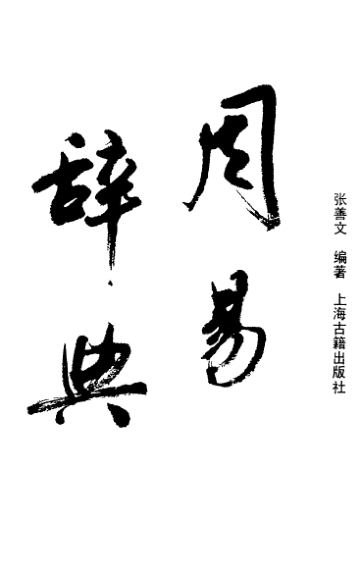 周易
辞典
张善文 编著 上海古籍出版社